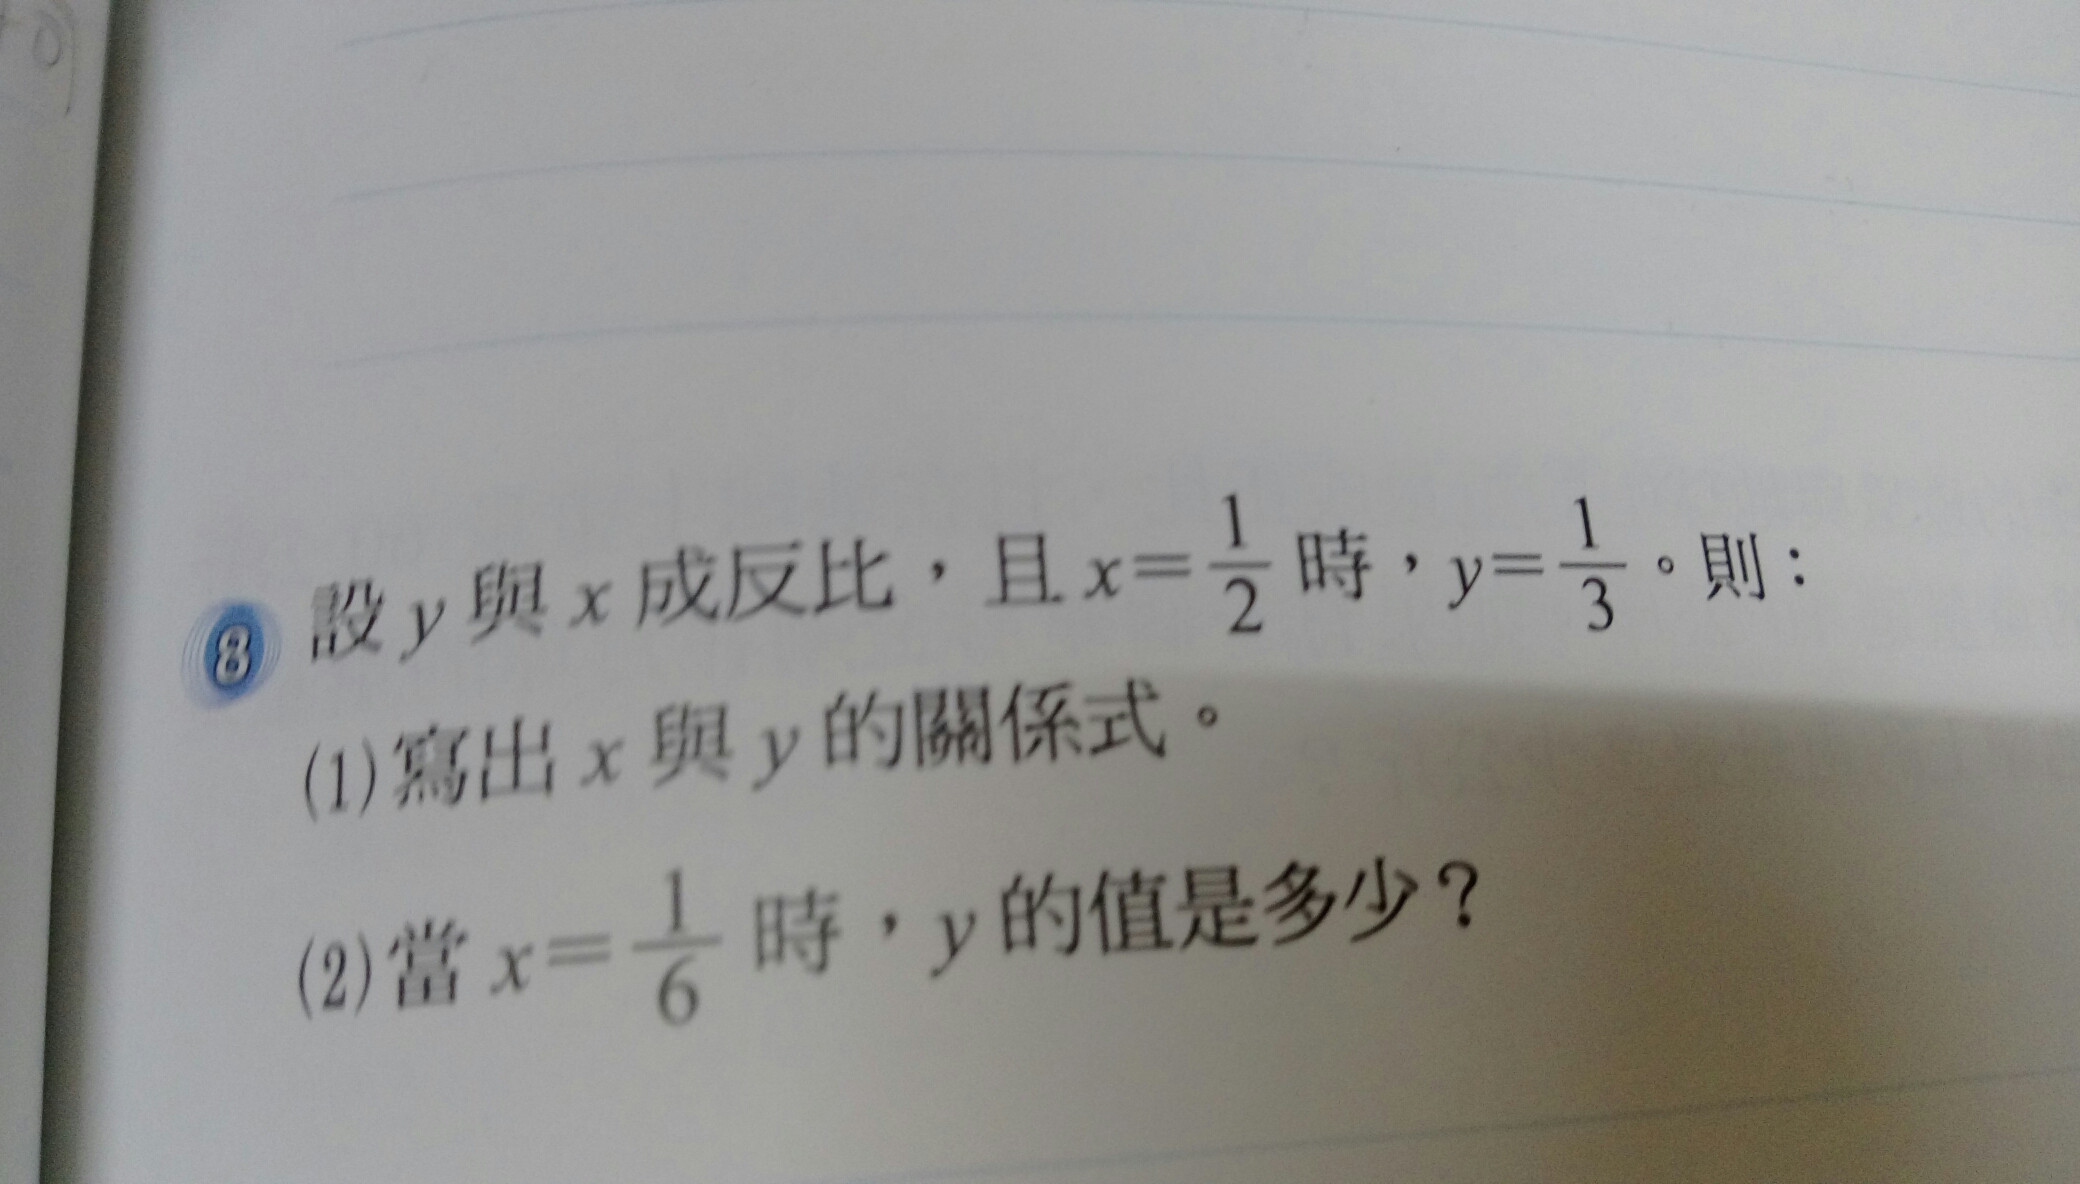 8 設 y 與 x 成反比，且 x=1/2 時，y=1/3。則：
(1)寫出 x 與 y 的關係式。
(2)當 x=1/6 時，y 的值是多少？